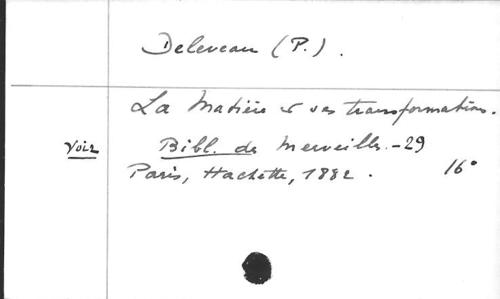 Deleveau (P.).
La Matière & ses transformations.
Voir Bibl. des Merveilles.-29
Paris, Hachette, 1882. 16°